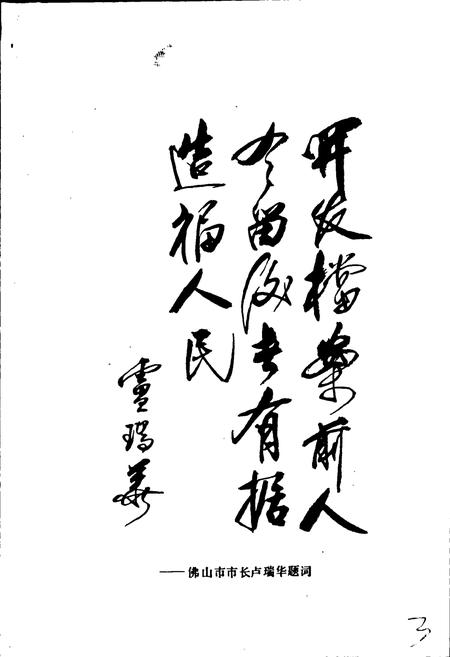 开发檔案前人
留後有据
造福人民
盧瑞華
——佛山市市长卢瑞华题词
3